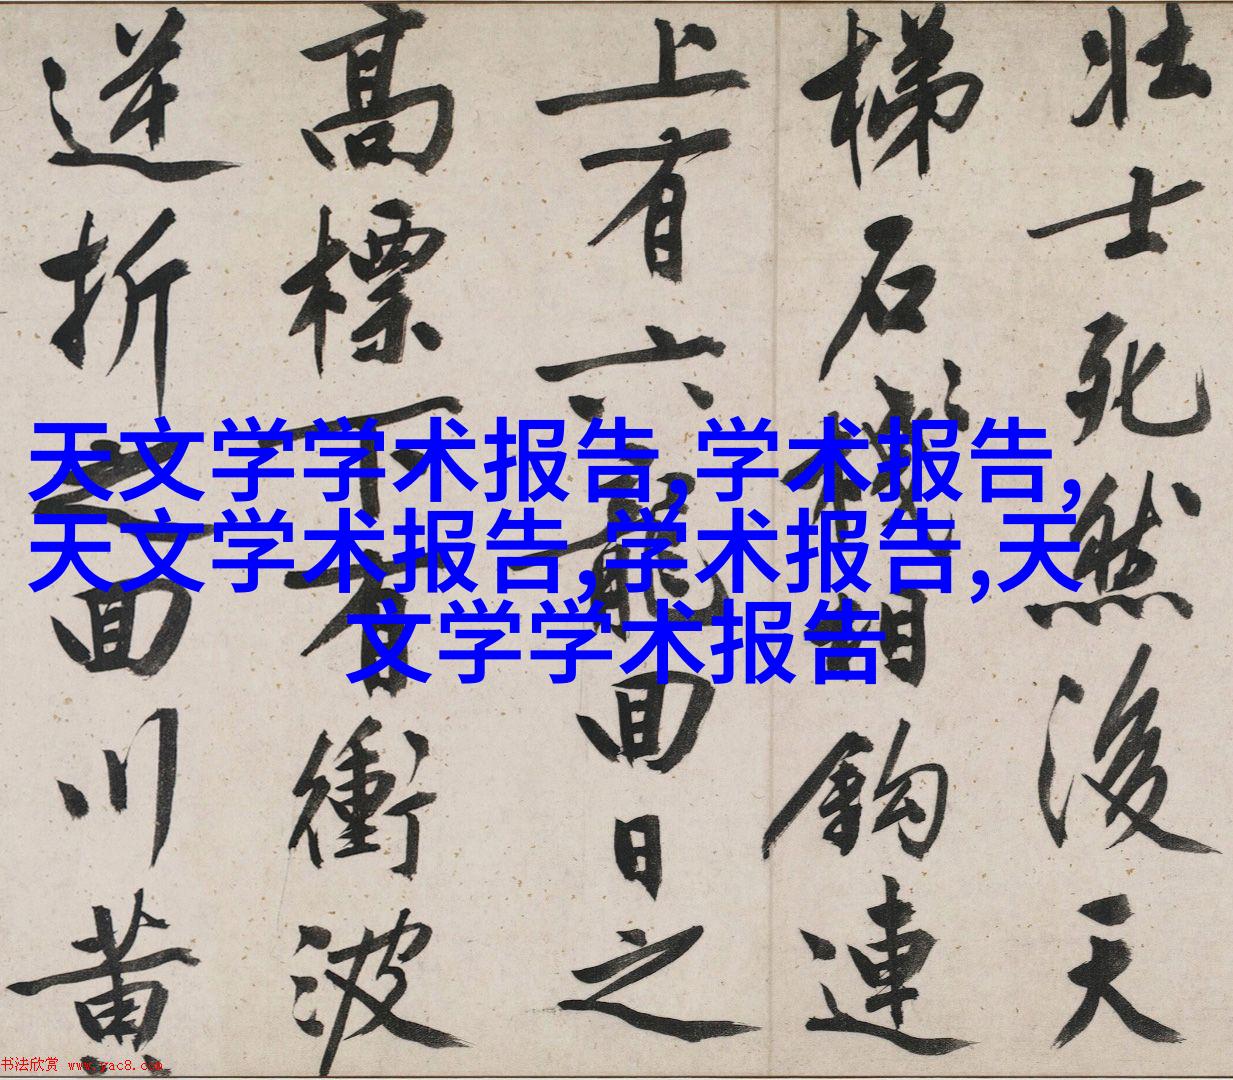 壮士死然後天
梯石棧相鉤連
上有六龍回日之
高標下有衝波
逆折之回川黄
天文学学术报告,学术报告,
天文学术报告,学术报告,天
文学学术报告
书法欣赏 www.yac8.com